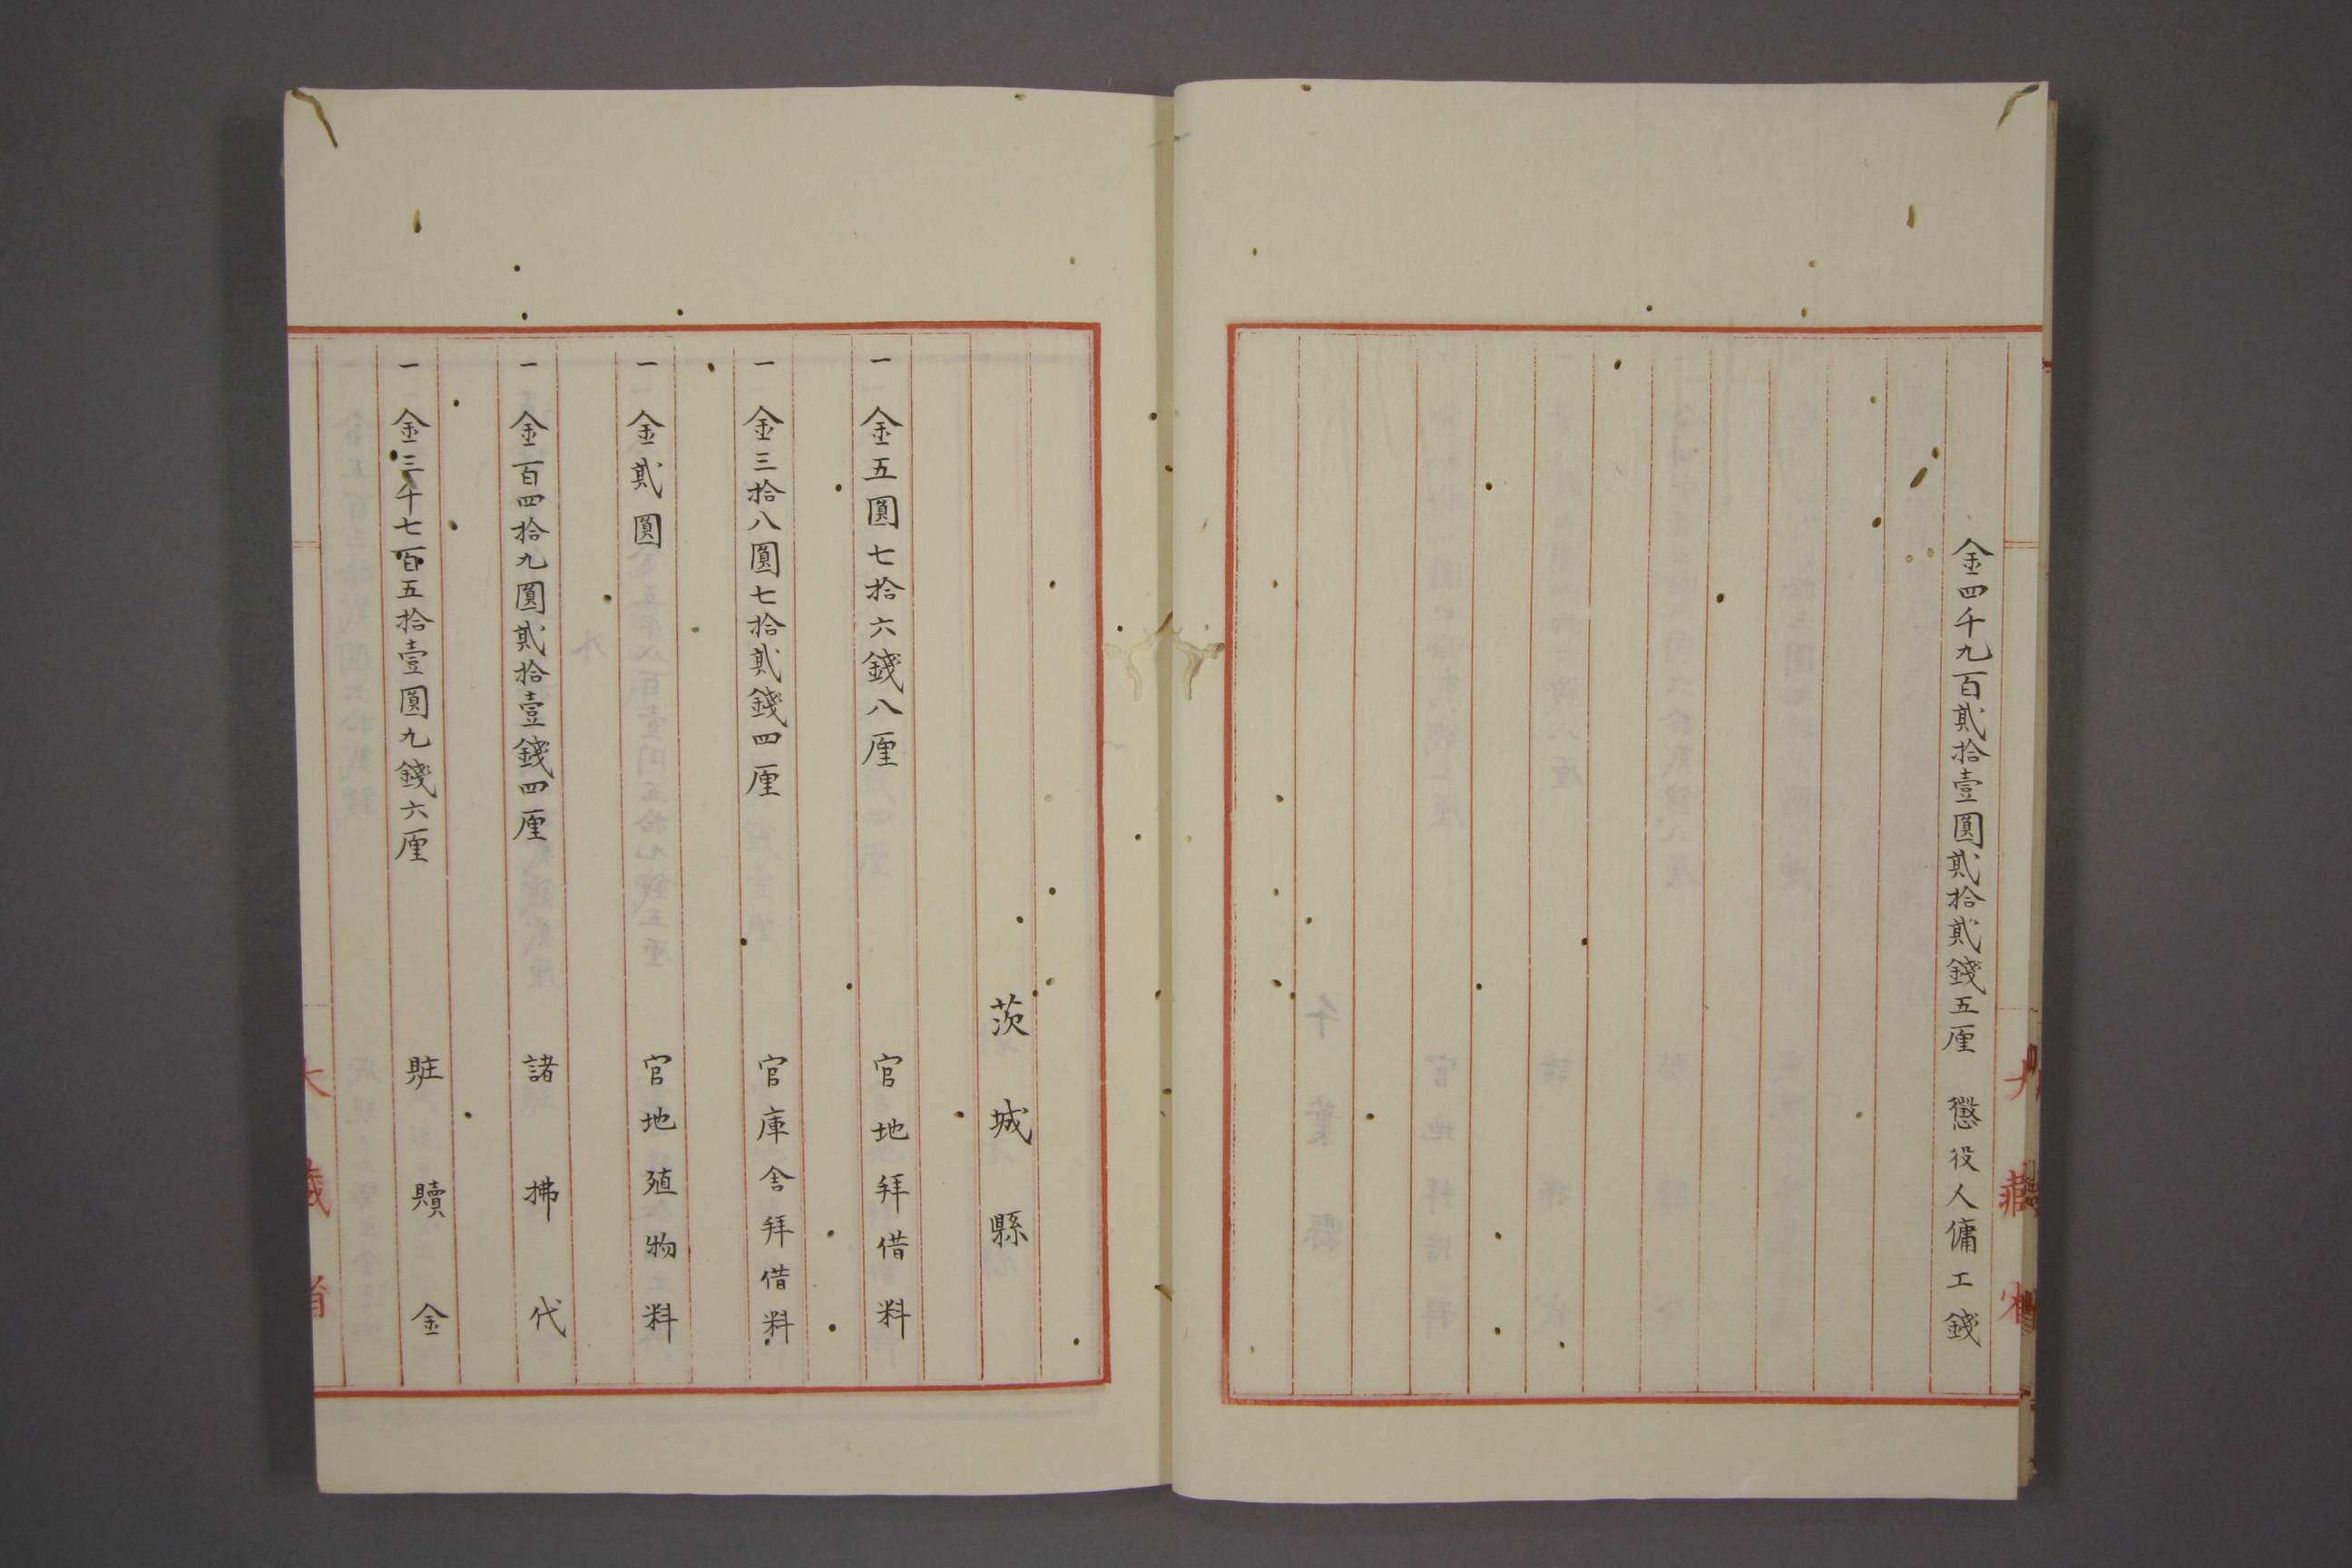 金四千九百貳拾壹圓貳拾貳錢五厘 懲役人傭工錢
大藏省
茨城縣
一 金五圓七拾六錢八厘 官地拜借料
一 金三拾八圓七拾貳錢四厘 官庫舎拜借料
一 金貳圓 官地殖物土料
一 金百四拾九圓貳拾壹錢四厘 諸拂代
一 金三千七百五拾壹圓九錢六厘 賍贖金
大藏省